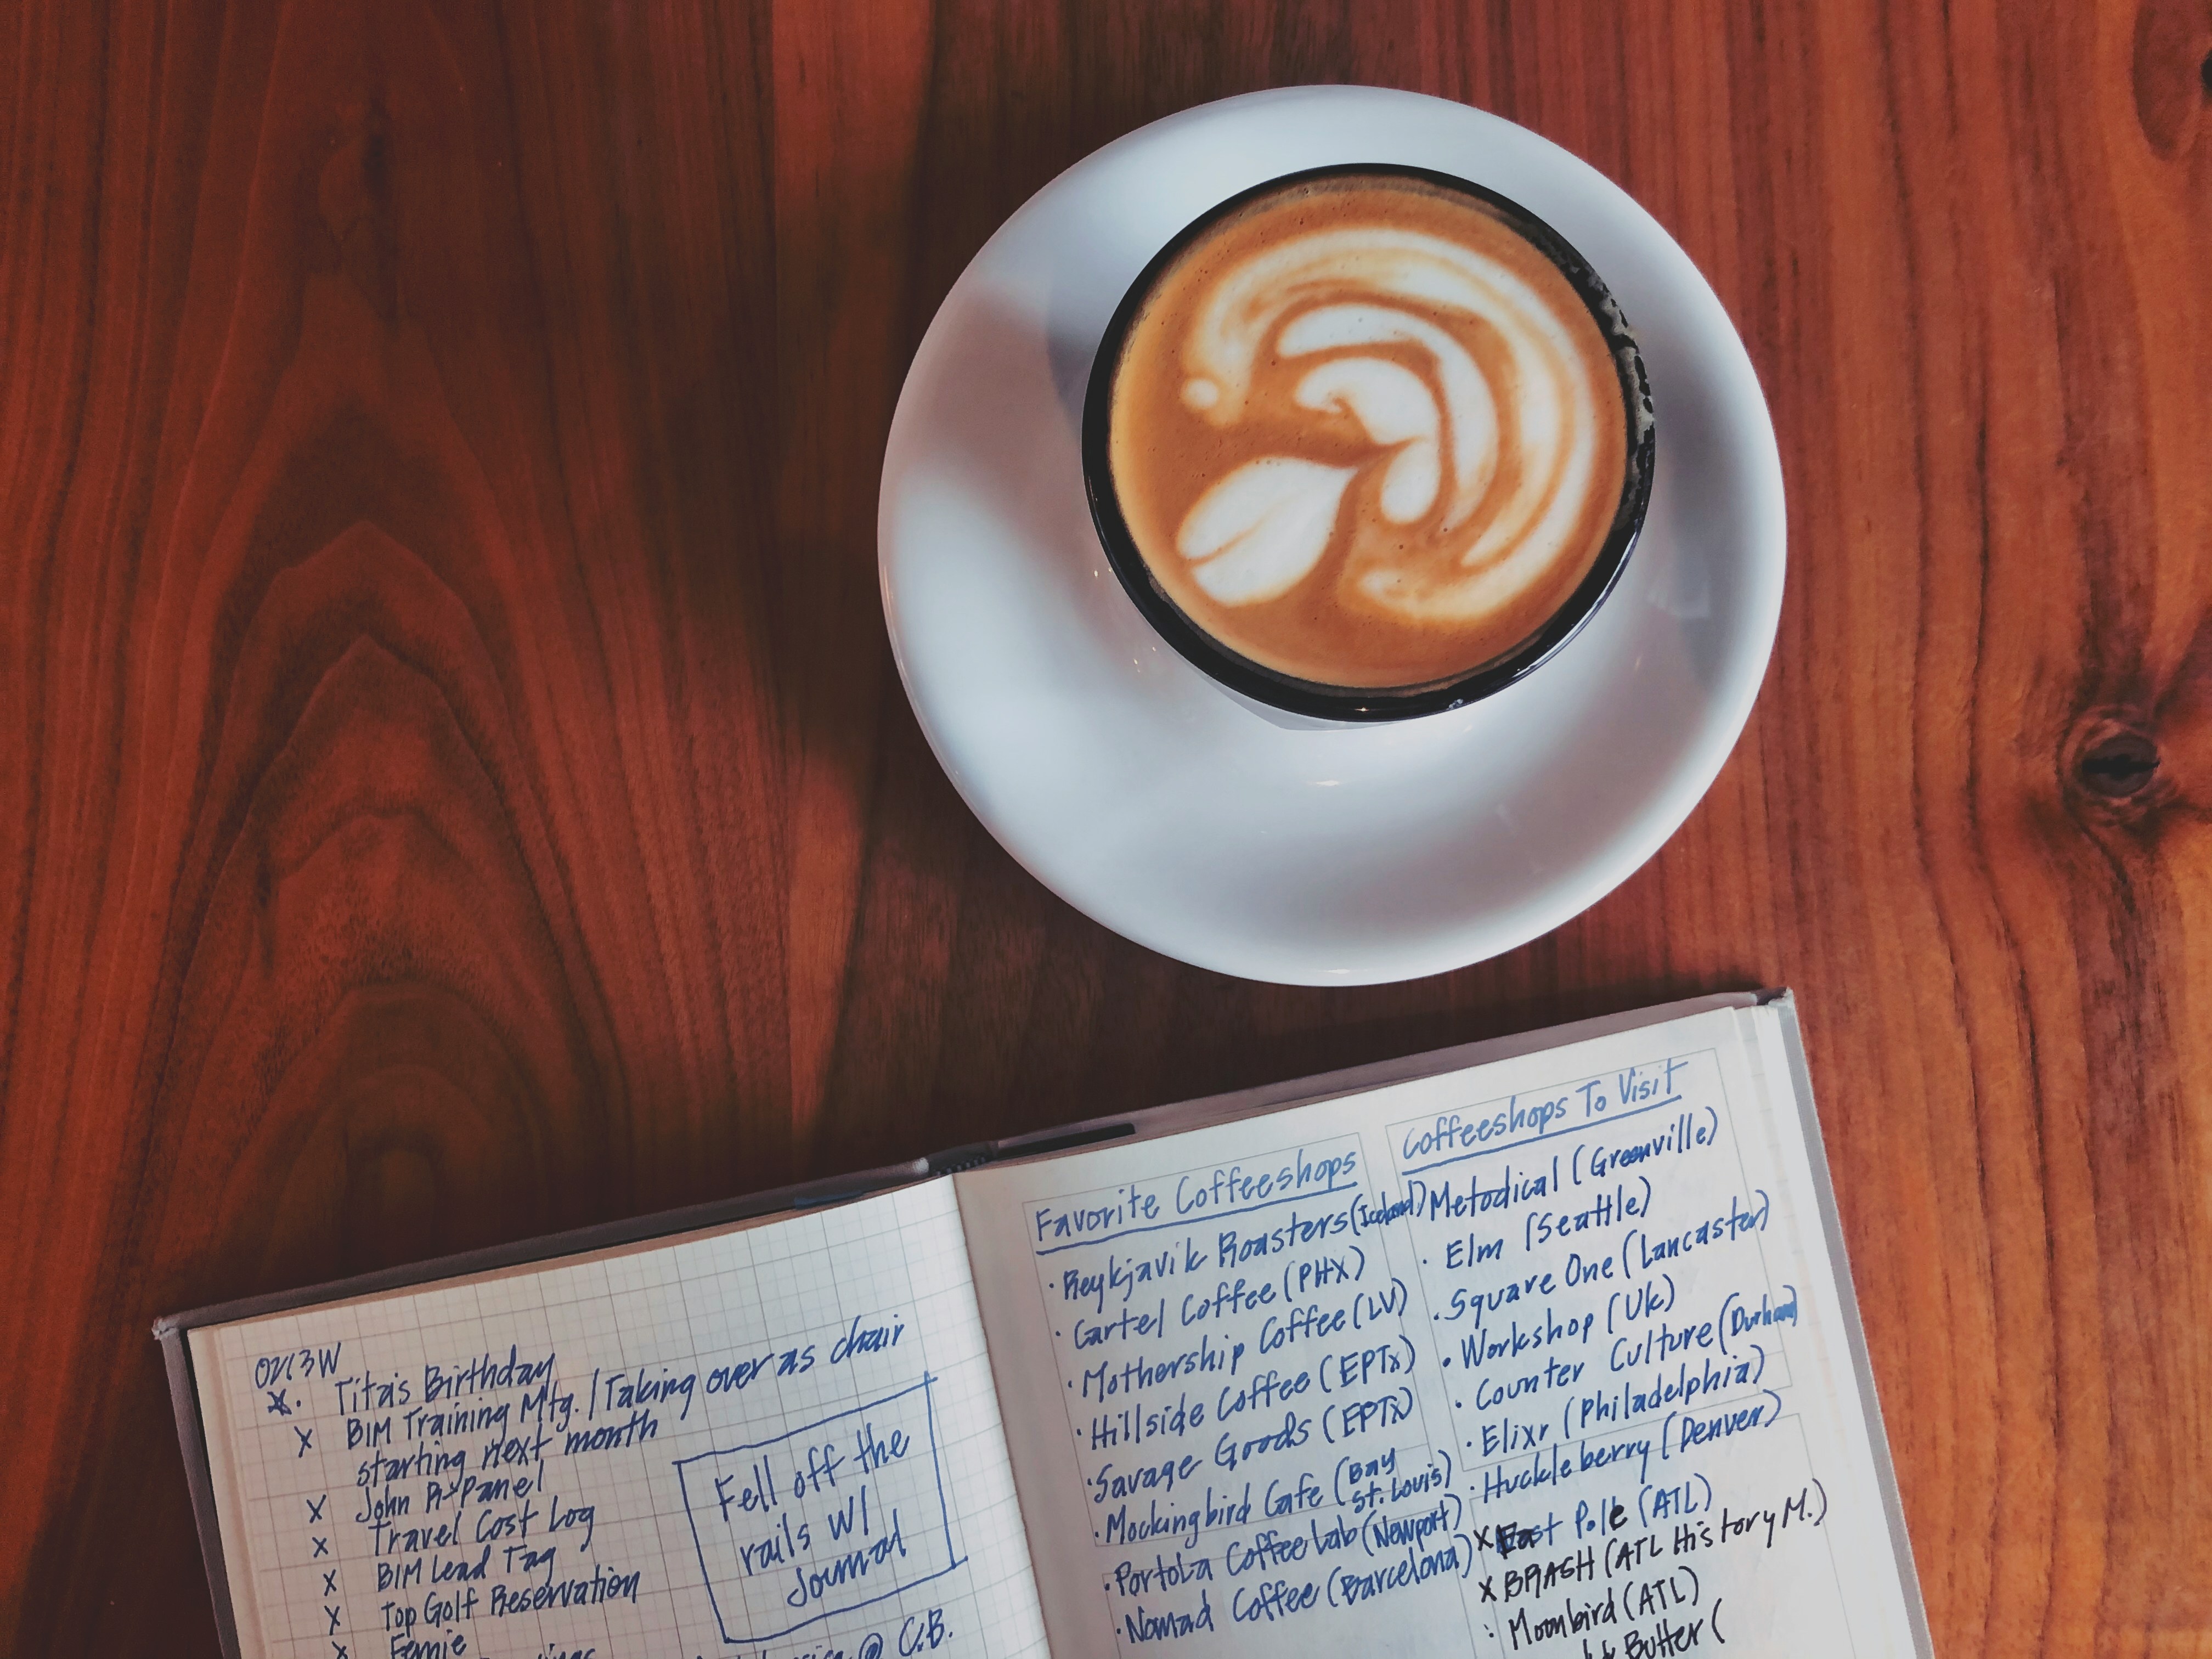 0213W
Tita's Birthday
BIM Training Mtg. / Taking over as chair
starting next month
John R Panel
Travel Cost Log
BIM Lead Tag
Top Golf Reservation
Fernie
@ C.B.
Fell off the
rails w/
Journal
Favorite Coffeeshops
· Reykjavik Roasters (Iceland)
· Cartel Coffee (PHX)
· Mothership Coffee (LV)
· Hillside Coffee (EPTx)
· Savage Goods (EPTx)
· Mockingbird Cafe (Bay
St. Louis)
· Portola Coffee Lab (Newport)
· Nomad Coffee (Barcelona)
Coffeeshops To Visit
Metodical (Greenville)
· Elm (Seattle)
· Square One (Lancaster)
· Workshop (UK)
· Counter Culture (Durham)
· Elixr (Philadelphia)
· Huckleberry (Denver)
x East Pole (ATL)
x BRASH (ATL History M.)
· Moonbird (ATL)
Butter (